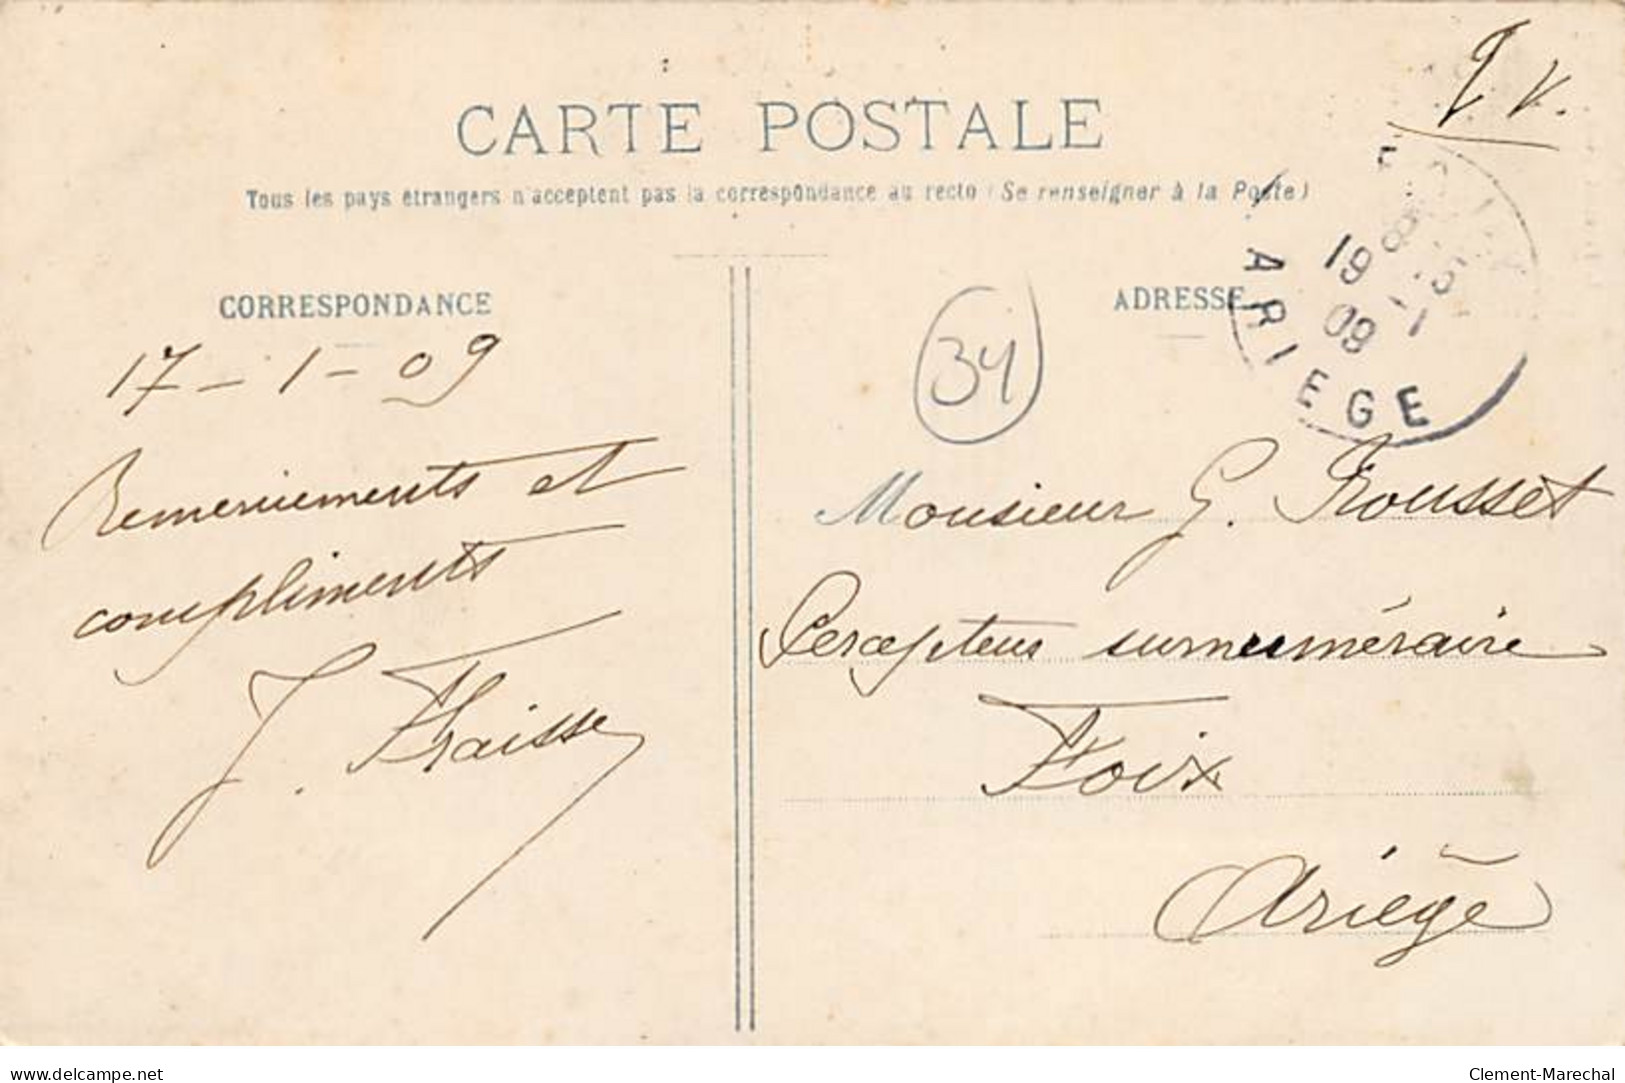 T.V.
CARTE POSTALE
Tous les pays étrangers n'acceptent pas la correspondance au recto (Se renseigner à la Poste)
CORRESPONDANCE
17-1-09
Remerciements et
compliments
J. Fraisse
34
ADRESSE
FOIX
19 -1
09
ARIEGE
Monsieur G. Rousset
Percepteur surnuméraire
Foix
Ariège
delcampe.net
Clement-Marechal